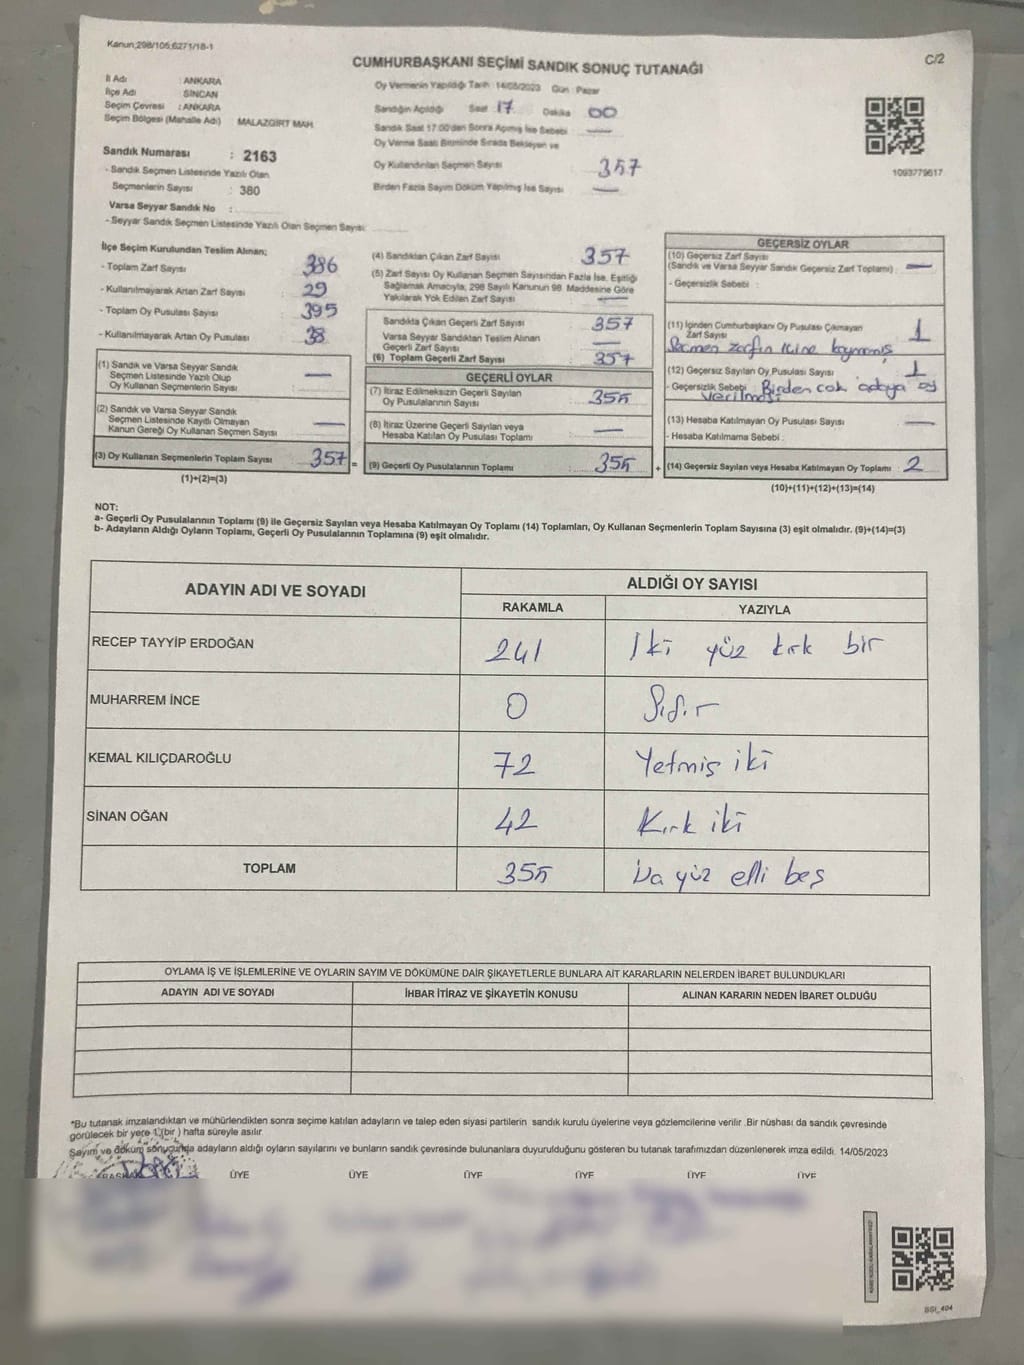 Kanun;298/105;6271/18-1
C/2
CUMHURBAŞKANI SEÇİMİ SANDIK SONUÇ TUTANAĞI
İl Adı : ANKARA
İlçe Adı : SİNCAN
Seçim Çevresi : ANKARA
Seçim Bölgesi (Mahalle Adı) MALAZGİRT MAH.
Oy Vermenin Yapıldığı Tarih 14/05/2023 Gün : Pazar
Sandığın Açıldığı Saat 17 Dakika 00
Sandık Saat 17:00'den Sonra Açılmış İse Sebebi —
Oy Verme Saati Bitiminde Sırada Bekleyen ve
Oy Kullandırılan Seçmen Sayısı 357
Birden Fazla Sayım Döküm Yapılmış İse Sayısı —
1093779617
Sandık Numarası : 2163
- Sandık Seçmen Listesinde Yazılı Olan
Seçmenlerin Sayısı : 380
Varsa Seyyar Sandık No :
- Seyyar Sandık Seçmen Listesinde Yazılı Olan Seçmen Sayısı:
İlçe Seçim Kurulundan Teslim Alınan;
- Toplam Zarf Sayısı 386
- Kullanılmayarak Artan Zarf Sayısı 29
- Toplam Oy Pusulası Sayısı 395
- Kullanılmayarak Artan Oy Pusulası 38
(1) Sandık ve Varsa Seyyar Sandık
Seçmen Listesinde Yazılı Olup
Oy Kullanan Seçmenlerin Sayısı —
(2) Sandık ve Varsa Seyyar Sandık
Seçmen Listesinde Kayıtlı Olmayan
Kanun Gereği Oy Kullanan Seçmen Sayısı —
(3) Oy Kullanan Seçmenlerin Toplam Sayısı 357 =
(1)+(2)=(3)
(4) Sandıktan Çıkan Zarf Sayısı 357
(5) Zarf Sayısı Oy Kullanan Seçmen Sayısından Fazla İse, Eşitliği
Sağlamak Amacıyla, 298 Sayılı Kanunun 98. Maddesine Göre
Yakılarak Yok Edilen Zarf Sayısı —
Sandıkta Çıkan Geçerli Zarf Sayısı 357
Varsa Seyyar Sandıktan Teslim Alınan
Geçerli Zarf Sayısı —
(6) Toplam Geçerli Zarf Sayısı 357
GEÇERLİ OYLAR
(7) İtiraz Edilmeksizin Geçerli Sayılan
Oy Pusulalarının Sayısı 355
(8) İtiraz Üzerine Geçerli Sayılan veya
Hesaba Katılan Oy Pusulası Toplamı —
(9) Geçerli Oy Pusulalarının Toplamı 355 +
GEÇERSİZ OYLAR
(10) Geçersiz Zarf Sayısı
(Sandık ve Varsa Seyyar Sandık Geçersiz Zarf Toplamı) : —
- Geçersizlik Sebebi :
(11) İçinden Cumhurbaşkanı Oy Pusulası Çıkmayan
Zarf Sayısı 1
Seçmen zarfın içine koymamış
(12) Geçersiz Sayılan Oy Pusulası Sayısı 1
- Geçersizlik Sebebi Birden çok adaya oy
verilmesi
(13) Hesaba Katılmayan Oy Pusulası Sayısı —
- Hesaba Katılmama Sebebi :
(14) Geçersiz Sayılan veya Hesaba Katılmayan Oy Toplamı 2
(10)+(11)+(12)+(13)=(14)
NOT:
a- Geçerli Oy Pusulalarının Toplamı (9) ile Geçersiz Sayılan veya Hesaba Katılmayan Oy Toplamı (14) Toplamları, Oy Kullanan Seçmenlerin Toplam Sayısına (3) eşit olmalıdır. (9)+(14)=(3)
b- Adayların Aldığı Oyların Toplamı, Geçerli Oy Pusulalarının Toplamına (9) eşit olmalıdır.
ADAYIN ADI VE SOYADI
ALDIĞI OY SAYISI
RAKAMLA YAZIYLA
RECEP TAYYİP ERDOĞAN 241 İki yüz kırk bir
MUHARREM İNCE 0 Sıfır
KEMAL KILIÇDAROĞLU 72 Yetmiş iki
SİNAN OĞAN 42 Kırk iki
TOPLAM 355 yüz elli beş
OYLAMA İŞ VE İŞLEMLERİNE VE OYLARIN SAYIM VE DÖKÜMÜNE DAİR ŞİKAYETLERLE BUNLARA AİT KARARLARIN NELERDEN İBARET BULUNDUKLARI
ADAYIN ADI VE SOYADI İHBAR İTİRAZ VE ŞİKAYETİN KONUSU ALINAN KARARIN NEDEN İBARET OLDUĞU
*Bu tutanak imzalandıktan ve mühürlendikten sonra seçime katılan adayların ve talep eden siyasi partilerin sandık kurulu üyelerine veya gözlemcilerine verilir .Bir nüshası da sandık çevresinde
görülecek bir yere 1 (bir ) hafta süreyle asılır.
Sayım ve döküm sonucunda adayların aldığı oyların sayılarını ve bunların sandık çevresinde bulunanlara duyurulduğunu gösteren bu tutanak tarafımızdan düzenlenerek imza edildi. 14/05/2023
BAŞKAN ÜYE ÜYE ÜYE ÜYE ÜYE ÜYE
BSI_404